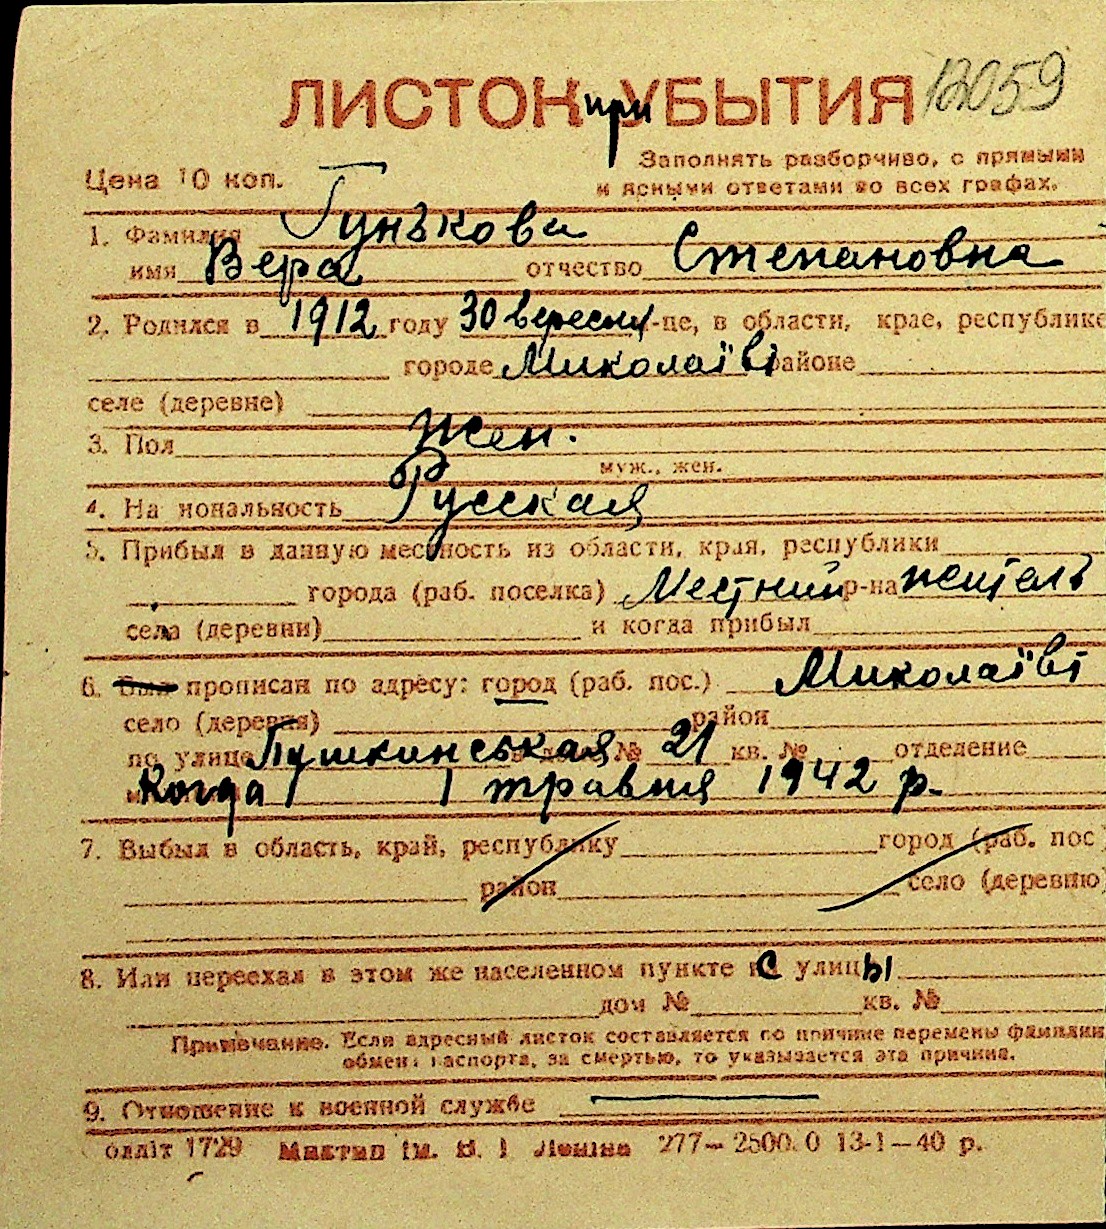 ЛИСТОК при УБЫТИЯ 12059
Заполнять разборчиво, с прямыми
Цена 10 коп. и ясными ответами во всех графах.
1. Фамилия Гунькова
имя Вера отчество Степановна
2. Родился в 1912 году 30 вересня -це, в области, крае, республике
городе Миколаїві районе
селе (деревне)
3. Пол жен.
муж., жен.
4. На иональность Русская
5. Прибыл в данную местность из области, края, республики
города (раб. поселка) Местний р-на житель
села (деревни) и когда прибыл
6. Был прописан по адресу: город (раб. пос.) Миколаїві
село (деревня) район
по улице Пушкинськая № 21 кв. № отделение
Когда 1 травня 1942 р.
7. Выбыл в область, край, республику город (раб. пос
район село (деревню)
8. Или переехал в этом же населенном пункте с улицы
дом № кв. №
Примечание. Если адресный листок составляется по причине перемены фамилии
обмен паспорта, за смертью, то указывается эта причина.
9. Отношение к военной службе
блліт 1729 ім. В. І Леніна 277–2500.0 13-1–40 р.